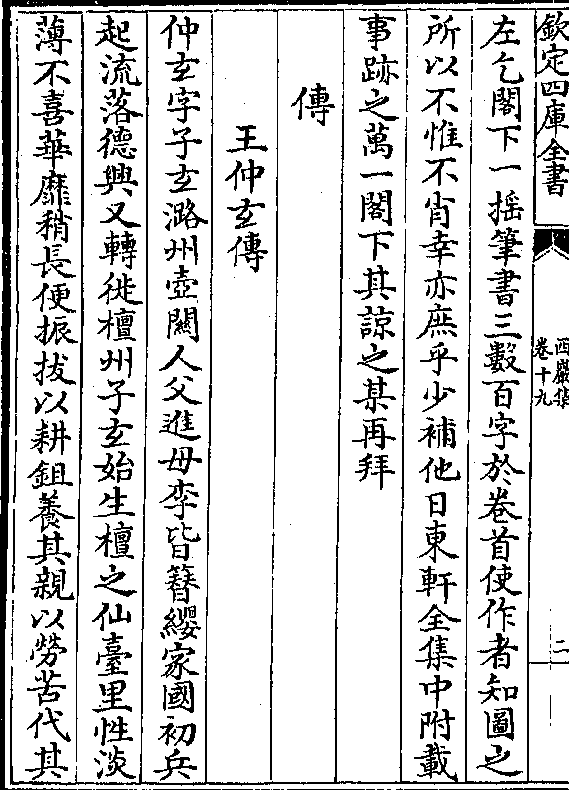 欽定四庫全書
西巖集
卷十九
二
左乞閣下一揺筆書三數百字於卷首使作者知圖之
所以不惟不肯幸亦庶乎少補他日東軒全集中附載
事跡之萬一閣下其諒之某再拜
傳
王仲玄傳
仲玄字子玄潞州壺闗人父進母李皆簪纓家國初兵
起流落德興又轉徙檀州子玄始生檀之仙臺里性淡
薄不喜華靡稍長便振拔以耕鉏養其親以勞苦代其